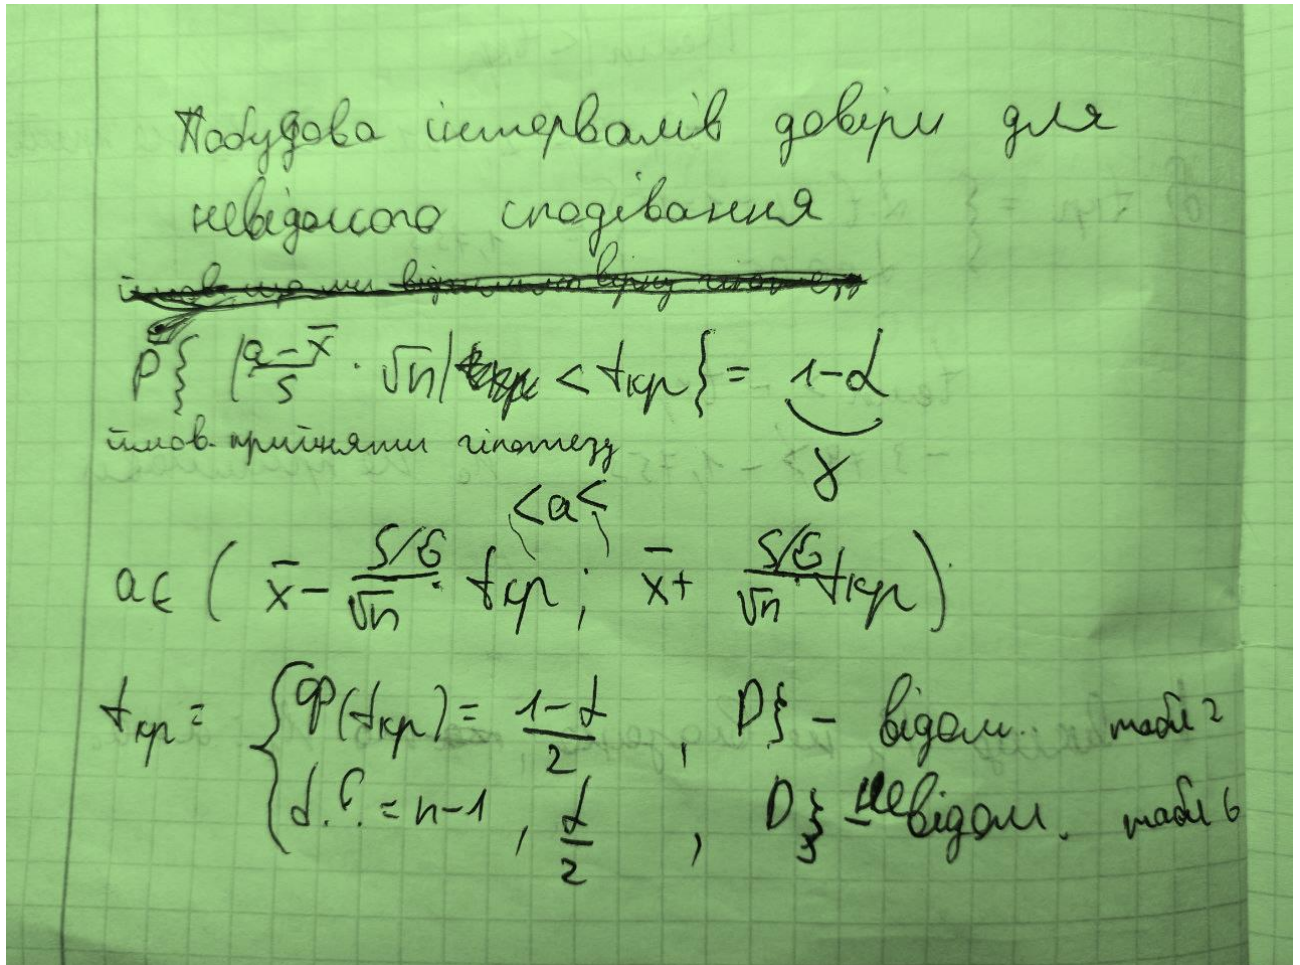 Побудова інтервалів довіри для
невідомого сподівання
P{ |a-x̄/S · √n| < tкр} = 1-α
γ
ймов. прийняти гіпотезу
<a<
a∈ ( x̄ - S/σ/√n · tкр ; x̄ + S/σ/√n · tкр )
tкр = { Φ(tкр) = 1-α/2 , Dξ - відом. табл 2
d.f. = n-1 , α/2 , Dξ - невідом. табл 6